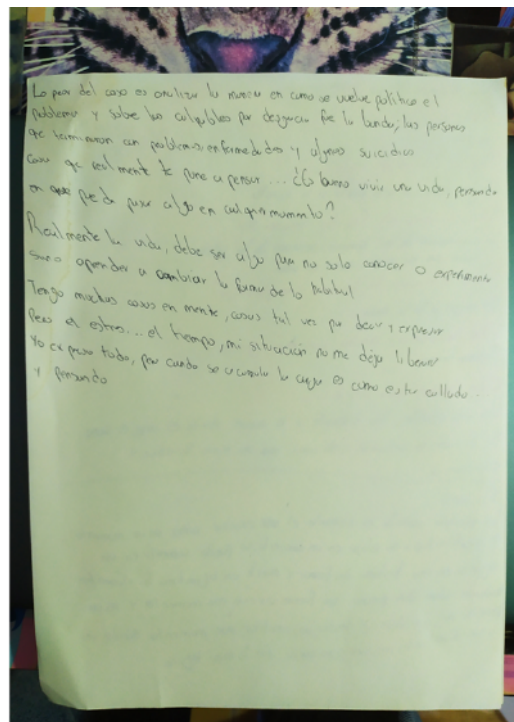 Lo peor del caso es analizar la manera en como se vuelve político el
problema y sobre los culpables por desgracia fue la banda, las personas
qe terminaron con problemas, enfermedades y algunos suicidios
Cosa qe realmente te pone a pensar... ¿Es bueno vivir una vida, pensando
en que pueda pasar algo en cualquier momento?
Realmente la vida, debe ser algo para no solo conocer o experimentar
sino aprender a cambiar la forma de lo habitual
Tengo muchas cosas en mente, cosas tal vez por decir y expresar
Pero el estres... el tiempo, mi situación no me deja liberar
Yo expreso todo, pero cuando se acumula la carga es como estar callado...
y pensando